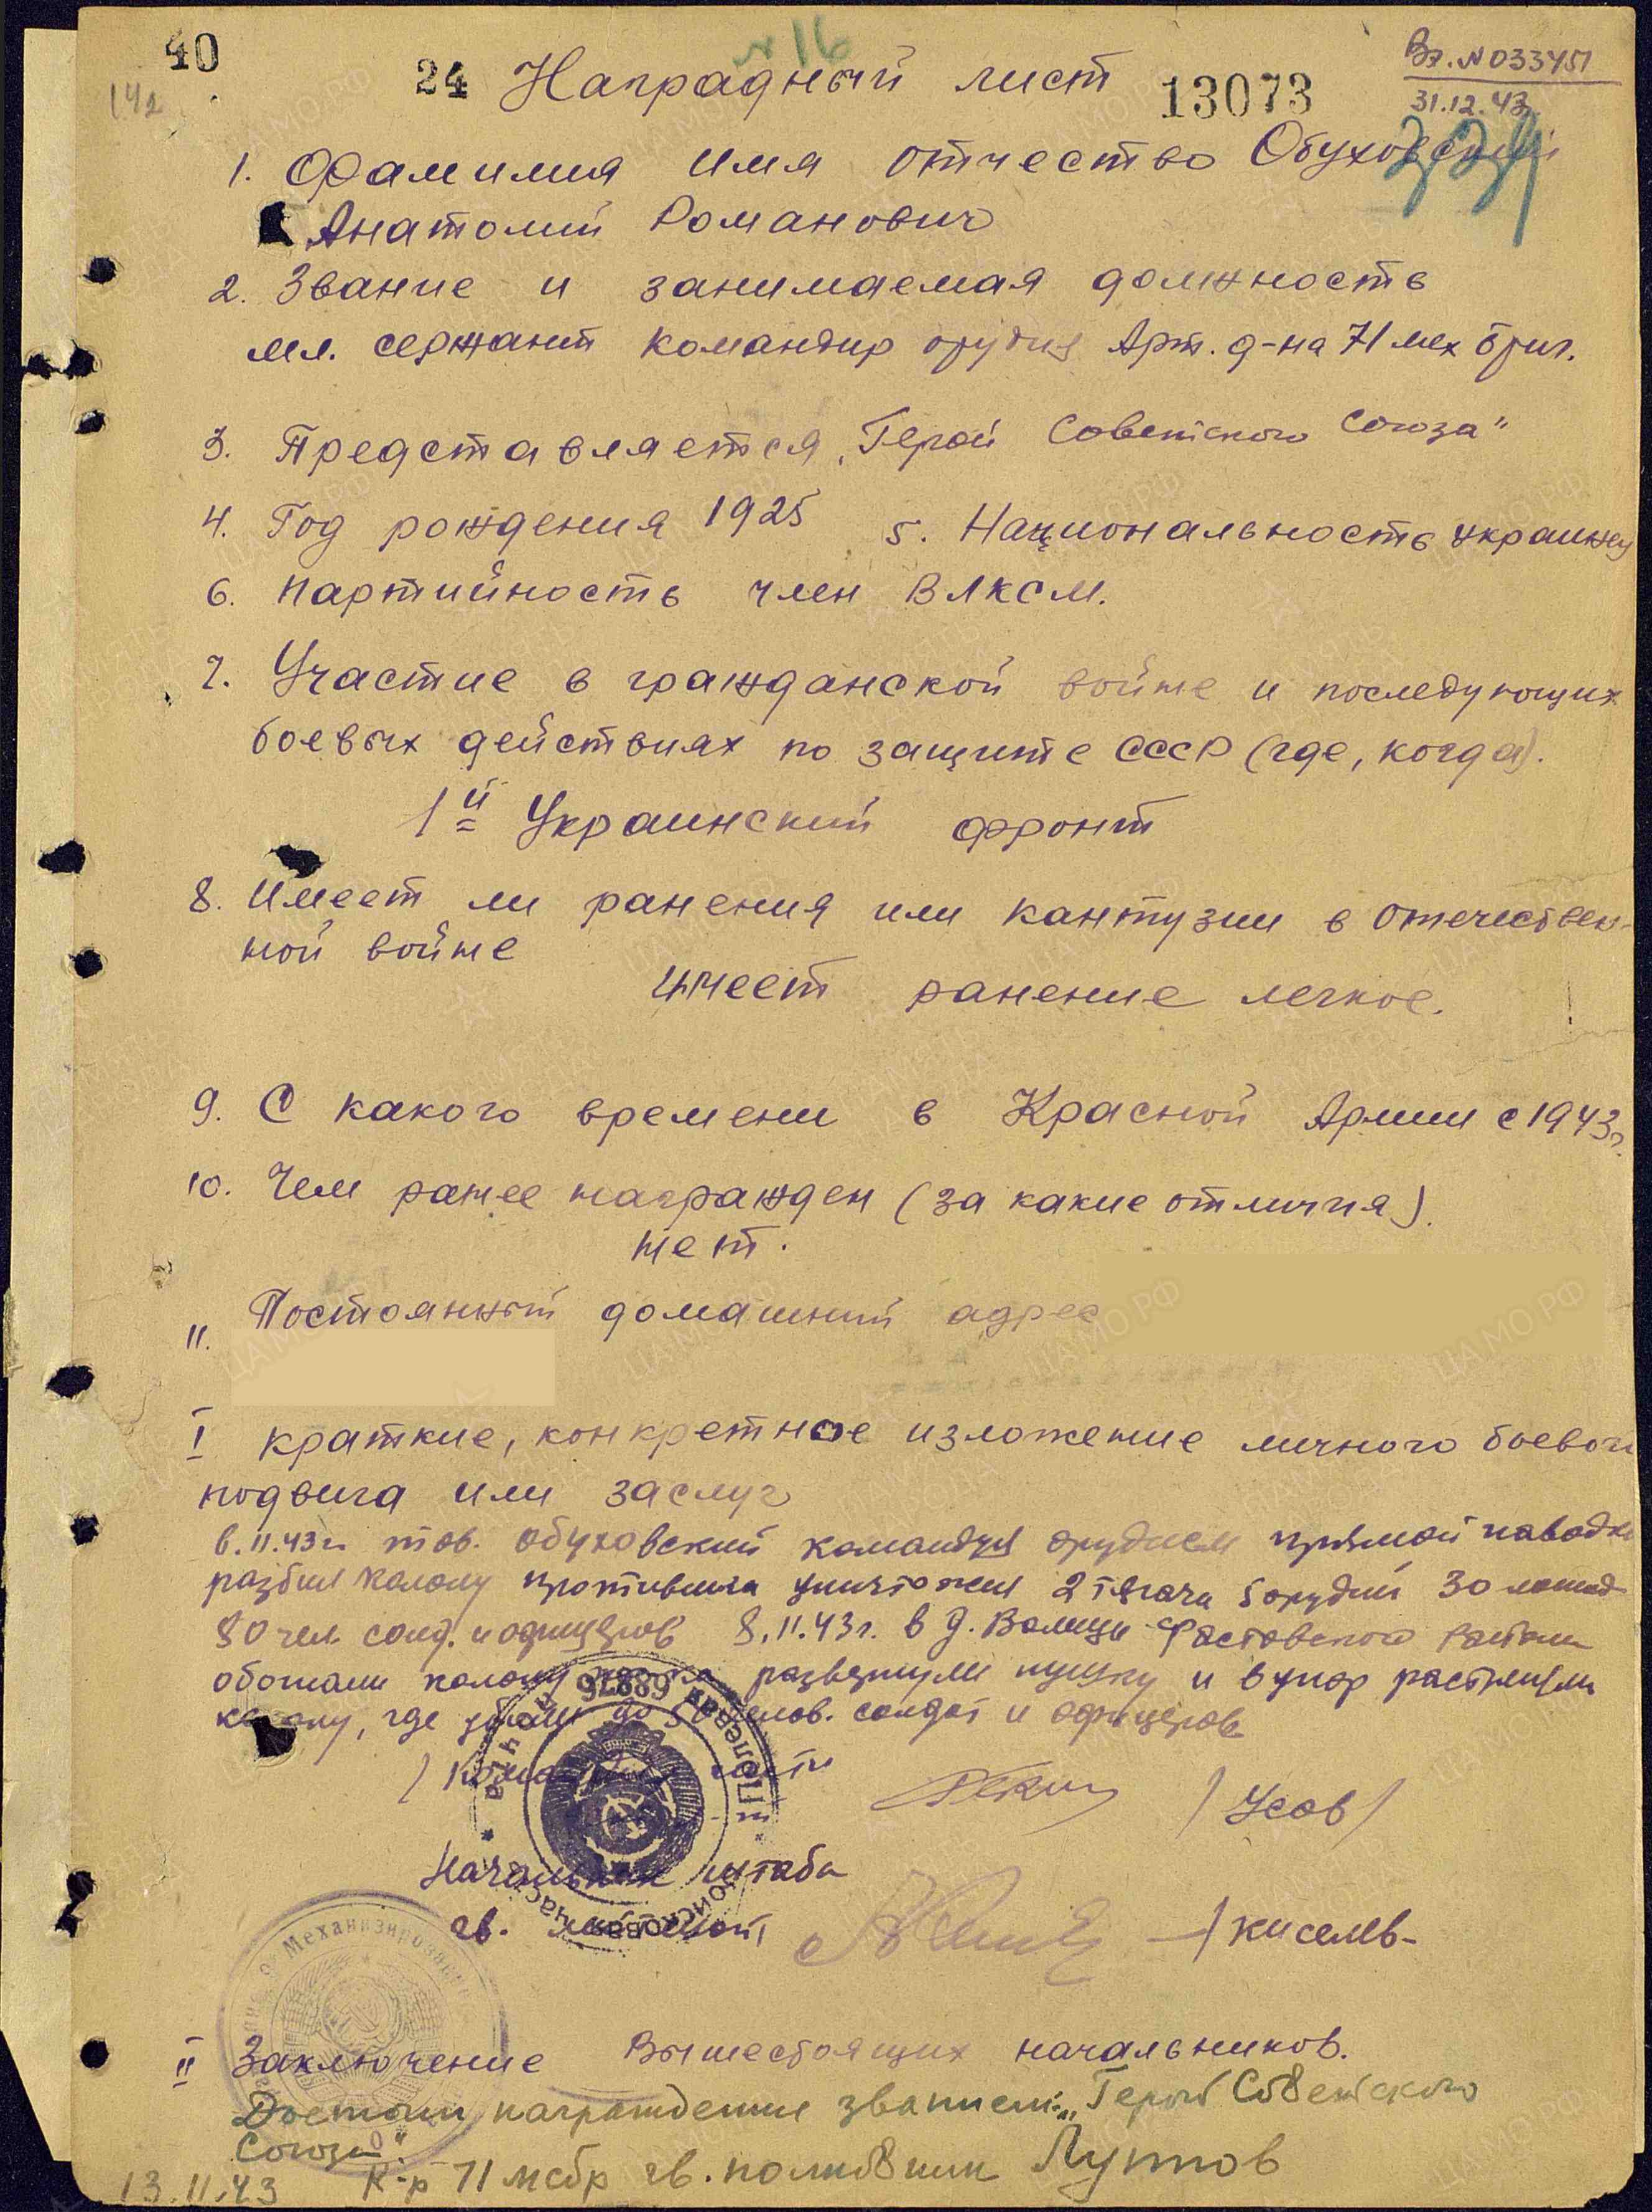 40
142
24 Наградный лист 13073
№ 16
Вх. N 033451
31.12.43
1. Фамилия имя отчество Обуховский
Анатолий Романович
2. Звание и занимаемая должность
мл. сержант командир орудия Арт. д-на 71 мех бриг.
3. Представляется „Герой Советского Союза"
4. Год рождения 1925 5. Национальность украинец
6. Партийность член ВЛКСМ.
7. Участие в гражданской войне и последующих
боевых действиях по защите СССР (где, когда).
1й Украинский фронт
8. Имеет ли ранения или кантузии в отечествен-
ной войне
имеет ранение легкое.
9. С какого времени в Красной Армии с 1943г.
10. Чем ранее награжден (за какие отличия).
нет.
11. Постоянный домашний адрес
I краткие, конкретное изложение личного боевого
подвига или заслуг
6.11.43г. тов. Обуховский командуя орудием прямой наводк
разбил колону противника уничтожил 2 тягача 5 орудий 30 лошад
80 чел. солд. и офицеров 8.11.43г. в д. Волица Фастовского
обогнали колону развернули пушку и в упор растреляли
где убили до 50 челов. солдат и офицеров
/ Командир части / Усов /
Полевая 68876
Войсковая часть
Начальник штаба
гв. / Кисель-
Механизирован
II Заключение вышестоящих начальников.
Достоин награждения званием: „Герой Советского
Союза".
К-р 71 мсбр гв. полковник Лупков
13.11.43